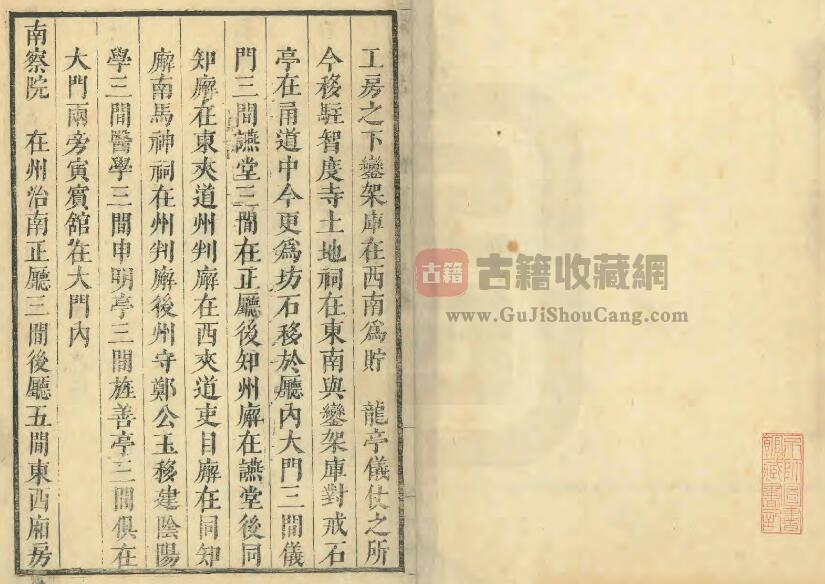 工房之下鑾架庫在西南爲貯 龍亭儀仗之所
今移駐智度寺土地祠在東南與鑾架庫對戒石
亭在甬道中今更爲坊石移於廳內大門三間儀
門三間讌堂三間在正廳後知州廨在讌堂後同
知廨在東夾道州判廨在西夾道吏目廨在同知
廨南馬神祠在州判廨後州守鄭公玉移建陰陽
學三間醫學三間申明亭三間旌善亭三間俱在
大門兩旁寅賓館在大門內
南察院 在州治南正廳三間後廳五間東西廂房
古籍
古籍收藏網
www.GuJiShouCang.com